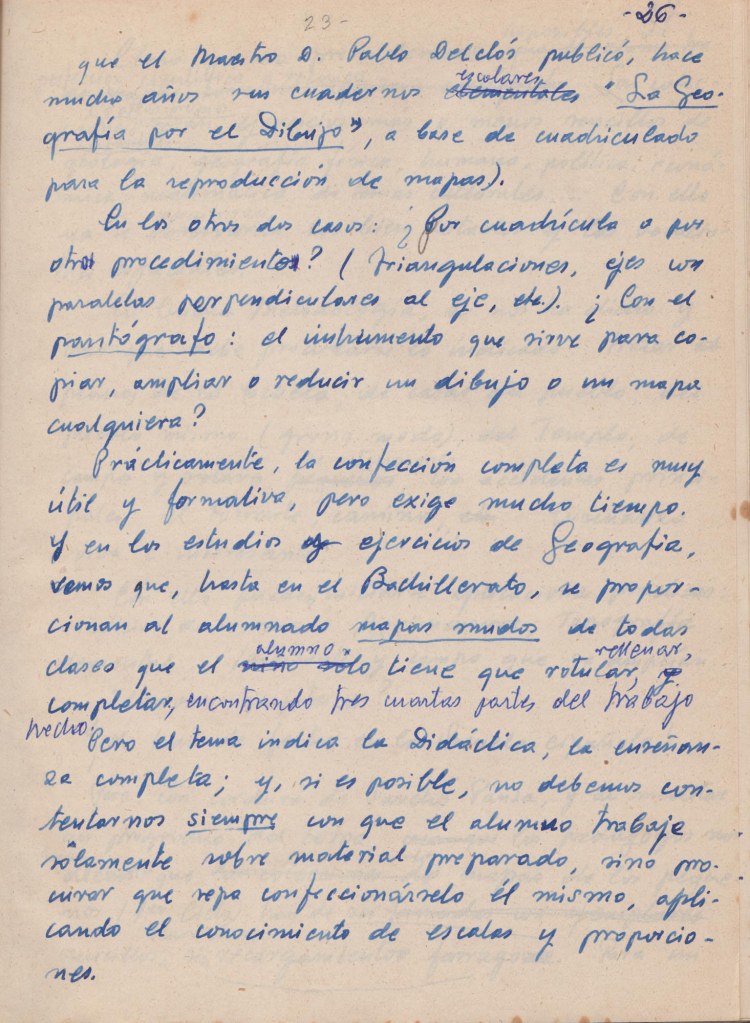 23-
-26-
que el Maestro D. Pablo Delclós publicó, hace
escolares
mucho años sus cuadernos elementales "La Geo-
grafía por el Dibujo", a base de cuadriculado
para la reproducción de mapas).
En los otros dos casos: ¿Por cuadrícula o por
otros procedimientos? (triangulaciones, ejes con
paralelas perpendiculares al eje, etc.). ¿Con el
pantógrafo: el instrumento que sirve para co-
piar, ampliar o reducir un dibujo o un mapa
cualquiera?
Prácticamente, la confección completa es muy
útil y formativa, pero exige mucho tiempo.
Y en los estudios y ejercicios de Geografía,
vemos que, hasta en el Bachillerato, se propor-
cionan al alumnado mapas mudos de todas
alumno rellenar,
clases que el niño sólo tiene que rotular, y
completar, encontrando tres cuartas partes del trabajo
hecho.
Pero el tema indica la Didáctica, la enseñan-
za completa; y, si es posible, no debemos con-
tentarnos siempre con que el alumno trabaje
sólamente sobre material preparado sino pro-
curar que sepa confeccionárselo él mismo, apli-
cando el conocimiento de escalas y proporcio-
nes.